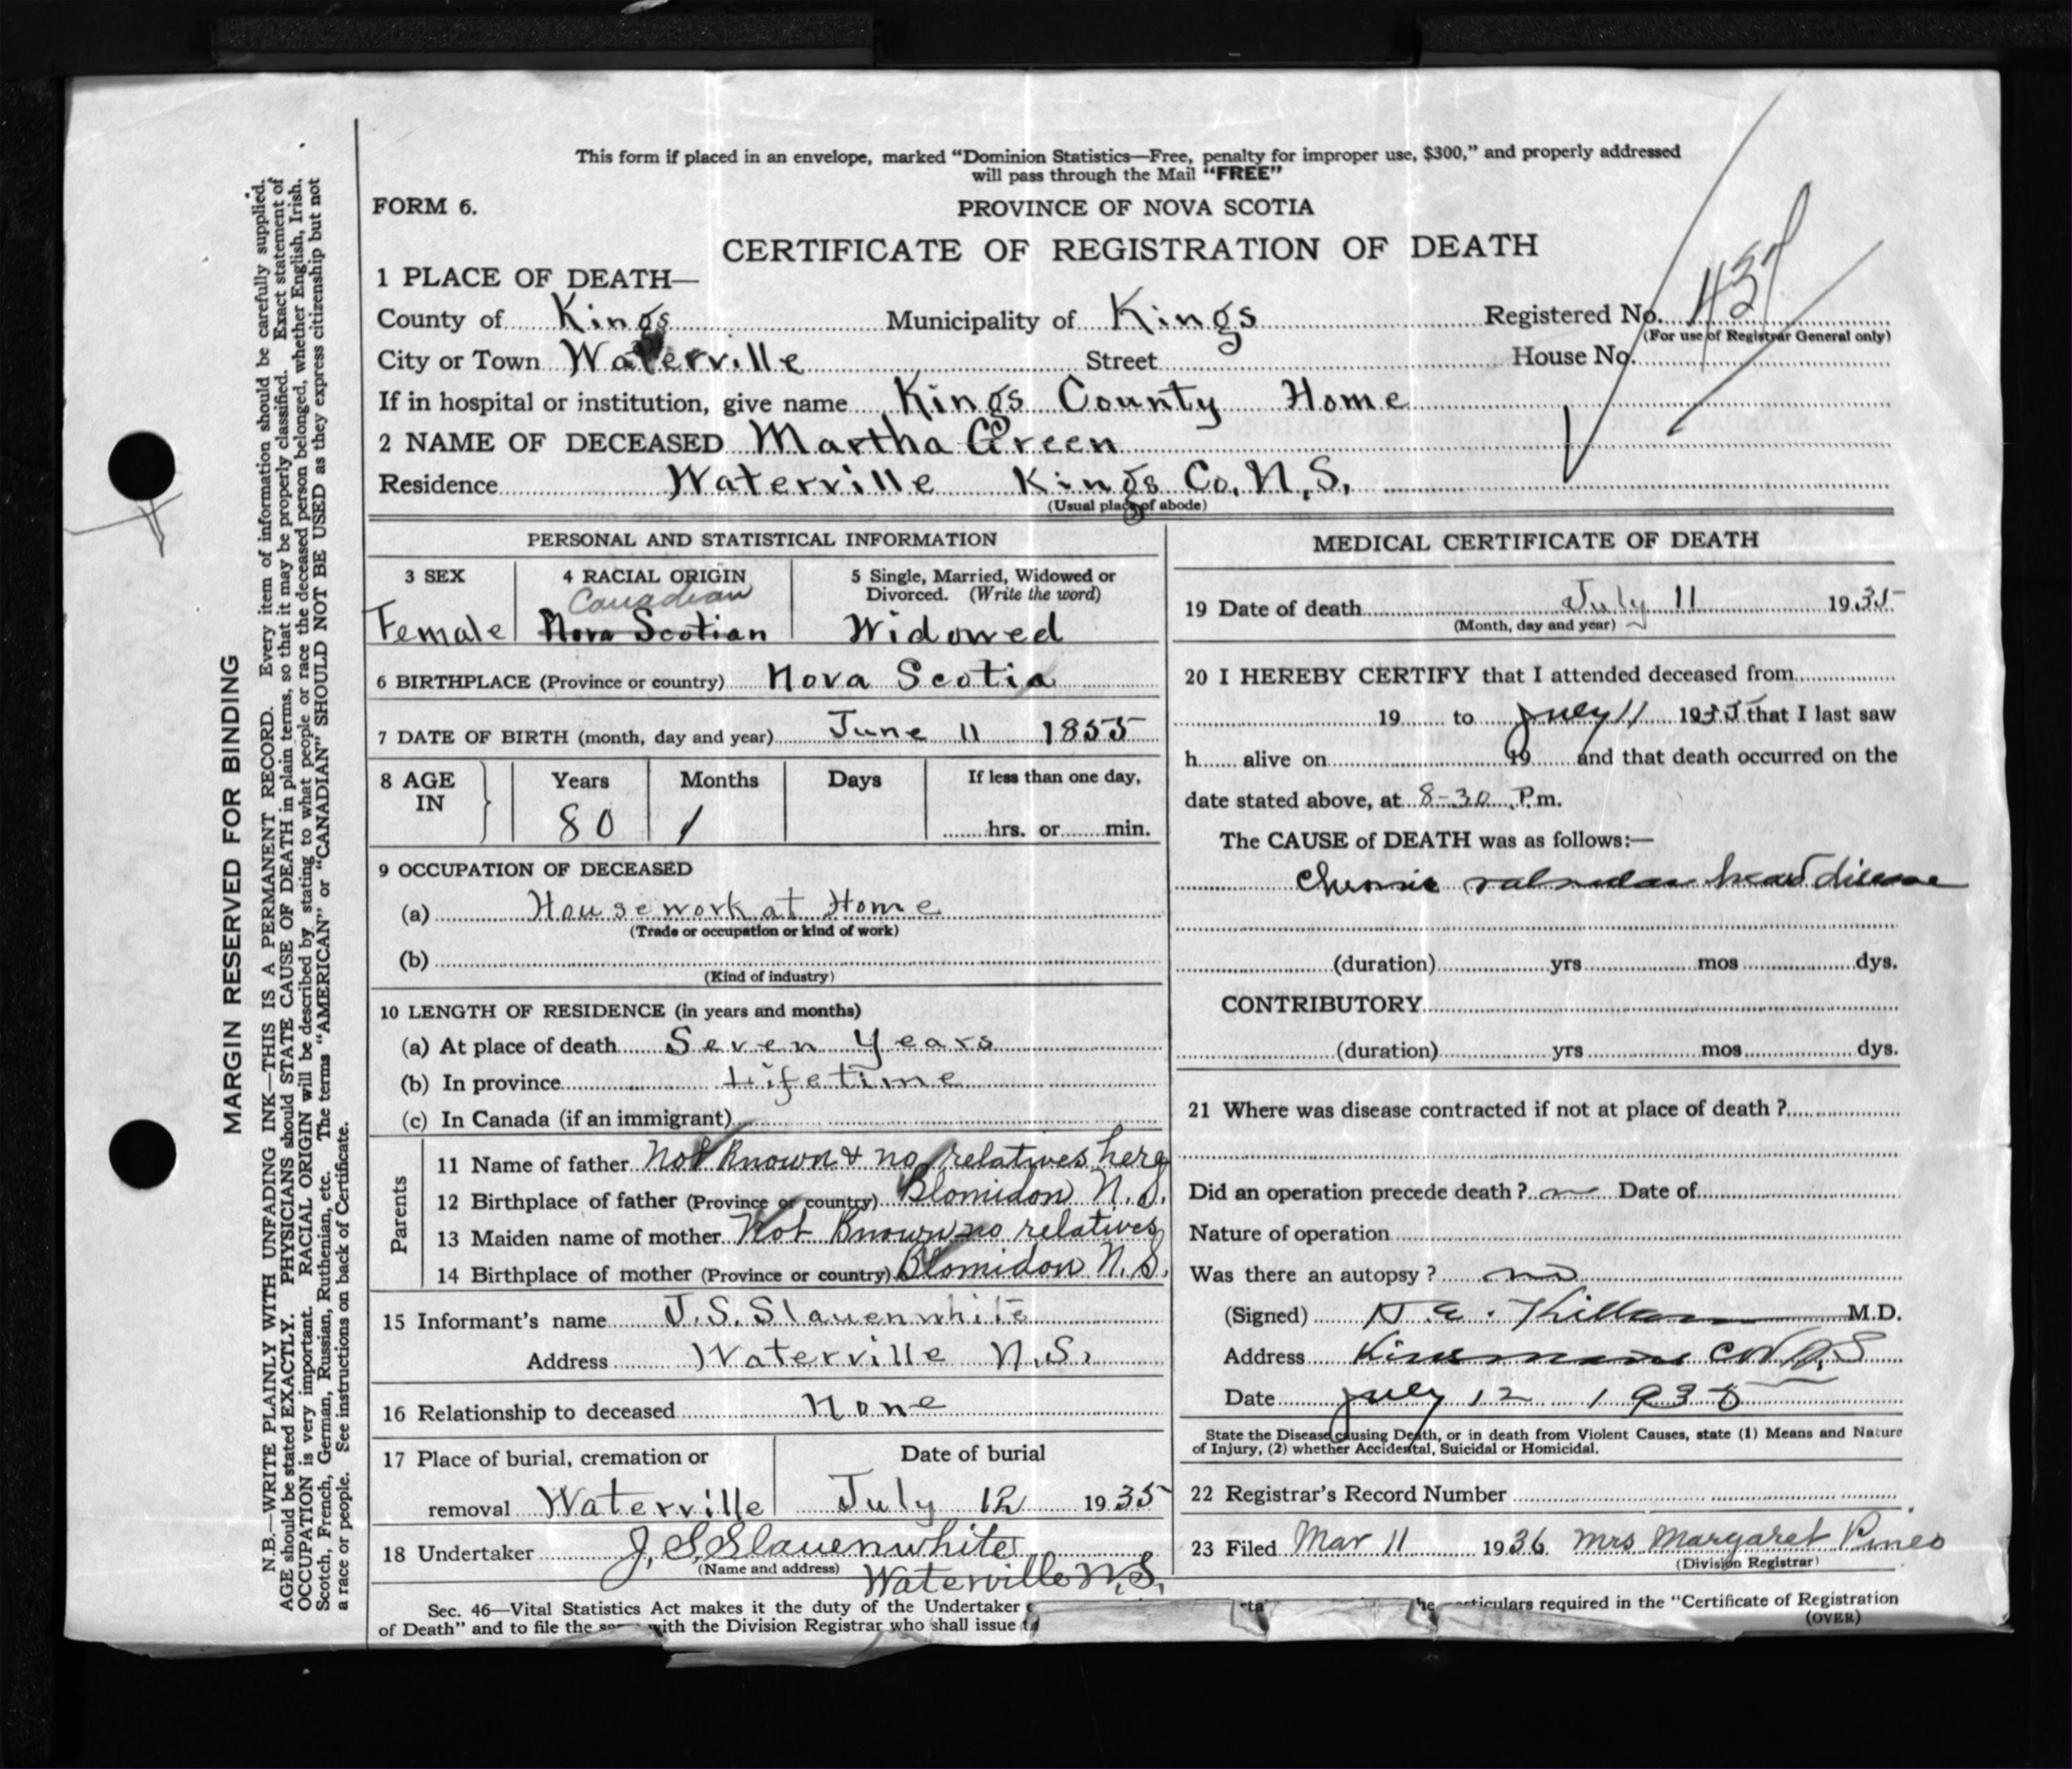 This form if placed in an envelope, marked "Dominion Statistics—Free, penalty for improper use, $300," and properly addressed
will pass through the Mail "FREE"
FORM 6.
PROVINCE OF NOVA SCOTIA
CERTIFICATE OF REGISTRATION OF DEATH
1 PLACE OF DEATH—
County of Kings Municipality of Kings Registered No. 437
(For use of Registrar General only)
City or Town Waterville Street House No.
If in hospital or institution, give name Kings County Home
2 NAME OF DECEASED Martha Green
Residence Waterville Kings Co. N.S.
(Usual place of abode)
PERSONAL AND STATISTICAL INFORMATION
3 SEX 4 RACIAL ORIGIN 5 Single, Married, Widowed or
Divorced. (Write the word)
Canadian
Female Nova Scotian Widowed
6 BIRTHPLACE (Province or country) Nova Scotia
7 DATE OF BIRTH (month, day and year) June 11 1855
8 AGE IN Years Months Days If less than one day,
80 1 hrs. or min.
9 OCCUPATION OF DECEASED
(a) Housework at Home
(Trade or occupation or kind of work)
(b)
(Kind of industry)
10 LENGTH OF RESIDENCE (in years and months)
(a) At place of death Seven Years
(b) In province Lifetime
(c) In Canada (if an immigrant)
Parents
11 Name of father Not Known & no relatives here
12 Birthplace of father (Province or country) Blomidon N.S.
13 Maiden name of mother Not Known no relatives
14 Birthplace of mother (Province or country) Blomidon N.S.
15 Informant's name J.S. Slauenwhite
Address Waterville N.S.
16 Relationship to deceased None
17 Place of burial, cremation or Date of burial
removal Waterville July 12 1935
18 Undertaker J. S. Slauenwhite
(Name and address) Waterville N.S.
MEDICAL CERTIFICATE OF DEATH
19 Date of death July 11 1935
(Month, day and year)
20 I HEREBY CERTIFY that I attended deceased from
19 to July 11 1935 that I last saw
h alive on 19 and that death occurred on the
date stated above, at 8-30 P.m.
The CAUSE of DEATH was as follows:—
Chronic valvular heart disease
(duration) yrs mos dys.
CONTRIBUTORY
(duration) yrs mos dys.
21 Where was disease contracted if not at place of death ?
Did an operation precede death ? no Date of
Nature of operation
Was there an autopsy ? no
(Signed) M.D.
Address N.S
Date July 12 1935
State the Disease causing Death, or in death from Violent Causes, state (1) Means and Nature
of Injury, (2) whether Accidental, Suicidal or Homicidal.
22 Registrar's Record Number
23 Filed Mar 11 1936 Mrs Margaret Pineo
(Division Registrar)
Sec. 46—Vital Statistics Act makes it the duty of the Undertaker particulars required in the "Certificate of Registration
of Death" and to file the same with the Division Registrar who shall issue
(OVER)
MARGIN RESERVED FOR BINDING
N.B.—WRITE PLAINLY WITH UNFADING INK—THIS IS A PERMANENT RECORD. Every item of information should be carefully supplied.
AGE should be stated EXACTLY. PHYSICIANS should STATE CAUSE OF DEATH in plain terms, so that it may be properly classified. Exact statement of
OCCUPATION is very important. RACIAL ORIGIN will be described by stating to what people or race the deceased person belonged, whether English, Irish,
Scotch, French, German, Russian, Ruthenian, etc. The terms "AMERICAN" or "CANADIAN" SHOULD NOT BE USED as they express citizenship but not
a race or people. See instructions on back of Certificate.